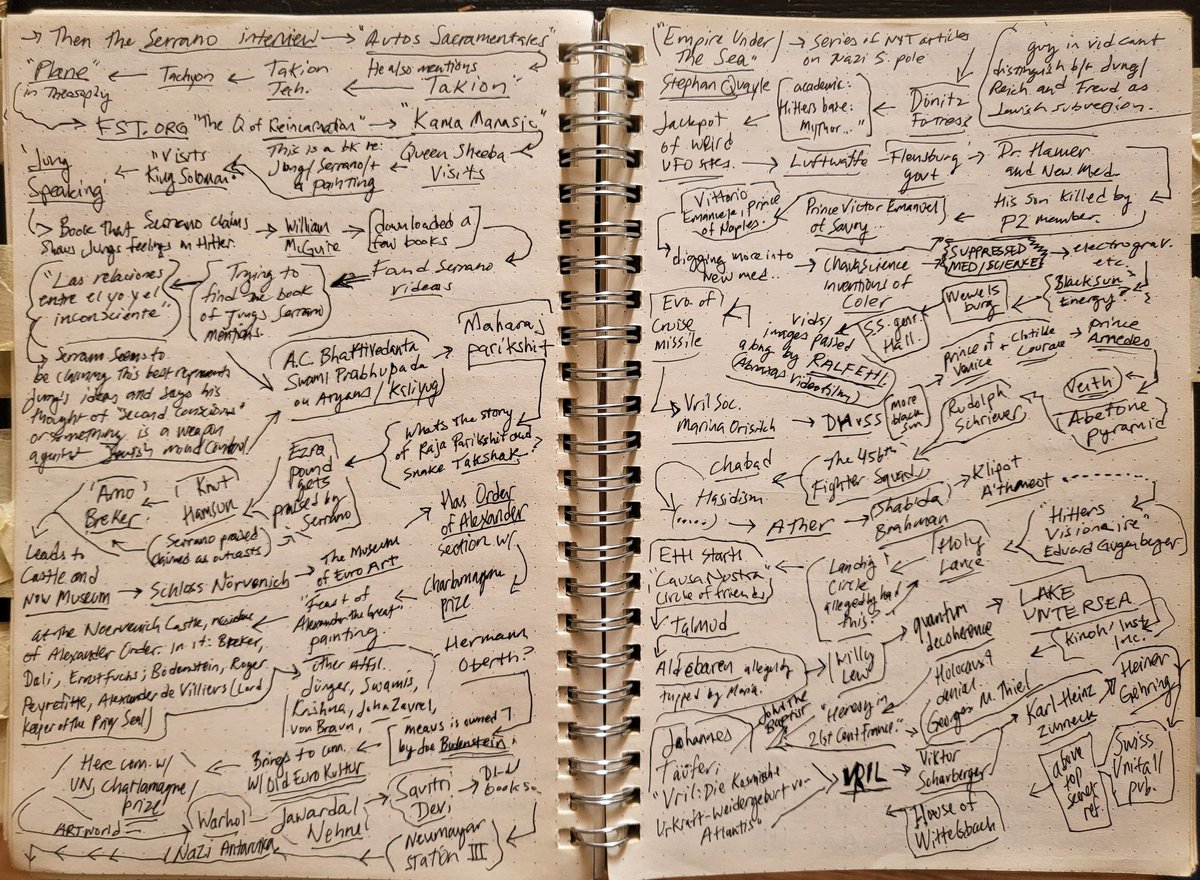 → Then the Serrano interview → "Autos Sacramentales"
"Plane" ← Tachyon ← Takion Tech. ← He also mentions "Takion"
in Theosophy
FST.ORG "The Q of Reincarnation" → "Kama Manasic"
"Jung Speaking" ← "Visits King Soloman" This is a bk re: Jung/Serrano/+ a painting Queen Sheeba Visits
→ Book that Serrano claims shows Jungs feelings on Hitler. → William McGuire → downloaded a few books
"Las relaciones entre el yo y el inconsciente" ← Trying to find the book of Jungs Serrano mentions. ← Found Serrano videos
→ Serrano seems to
be claiming this best represents
Jung's ideas and says his
thought of "second conscious"
or something is a weapon
against Jewish mind control
A.C. Bhaktivedanta
Swami Prabhupada
on Aryans/Kaliyug
Maharaj
parikshit
Whats the story
of Raja Parikshit and
snake Takshak?
Ezra
pound
gets
praised by
Serrano
'Arno Breker' ← Knut Hamsun
(Serrano praised
claimed as outcasts)
Leads to
Castle and
Now Museum → Schloss Nörvenich → The Museum
of Euro Art
Has Order
of Alexander
section w/
Charlemagne
prize
"Feast of
Alexander the Great"
painting.
at the Noervenich Castle, residence
of Alexander Order. In it: Breker,
Dali, Ernst Fuchs, Bodenstein, Roger
Peyrefitte, Alexander de Villiers (Lord
Keeper of the Privy Seal)
other Affil.
Jünger, Swamis,
Krishna, John Zavrel,
von Braun,
Hermann
Oberth?
means is owned
by Joe Bodenstein.
Here conn. w/
UN, Charlamagne
prize
← Brings to conn.
w/ Old Euro Kultur
ART world = Warhol Jawardal Nehrul → Savitri Devi →
Nazi Antarctica ← Neumayar
station III
"Empire Under
The Sea" → Series of NYT articles
on Nazi S. pole
guy in vid cant
distinguish b/t Jung/
Reich and Freud as
Jewish subversion.
Stephan Quayle
academic:
Hitlers base:
Myth or..." ← Dönitz
Fortress
Jackpot
of weird
UFO sites. → Luftwaffe – Flensburg
govt → Dr. Hamer
and New Med.
Vittorio
Emanuele, prince
of Naples. Prince Victor Emanuel
of Savoy... ← His son Killed by
P2 member.
digging more into
new med.. → Chava Science
inventions of
Coler → SUPPRESSED
MED/SCIENCE → electrograv.
etc.
Evo. of
Cruise
missile
vids/
images passed
along by RALF EHL
(Abraxas Videofilm)
S.S. genr.
Hall. Wewelsburg Black Sun
Energy?
→ Vril Soc.
Maria Orisitch → DHvSS more
black
sun Prince of
Venice + Clotilde
Courau → Prince
Amedeo
Rudolph
Schriever, Veith
Abetone
pyramid
Chabad
Hasidism
(.....) → Ather → Shabda
Brahman The 456th
Fighter Squad Klipot
Aithmeot ...........
Ettl startl
"Causa Nostra"
Circle of friends Landig
Circle
allegedly had
this? Holy
Lance "Hitlers
Visionaire"
Eduard Gugenberger.
Talmud
Aldebaren allegedly
tapped by Maria. Willy
Ley quantum
decoherence → LAKE
UNTERSEA
"Kinoh" Inst.
Inc.
Johannes
Täufer:
"Vril: Die Kosmische
Urkraft-Weidergeburt von
Atlantis" John the
Baptist "Heresy in
21st Cent France." Holocaust
denial.
Georges M. Thiel
VRIL → Viktor
Schauberger Karl-Heinz
Zunneck → Heiner
Gehring
House of
Wittelsbach above
top
secret
ref. Swiss
Unitall
pub.